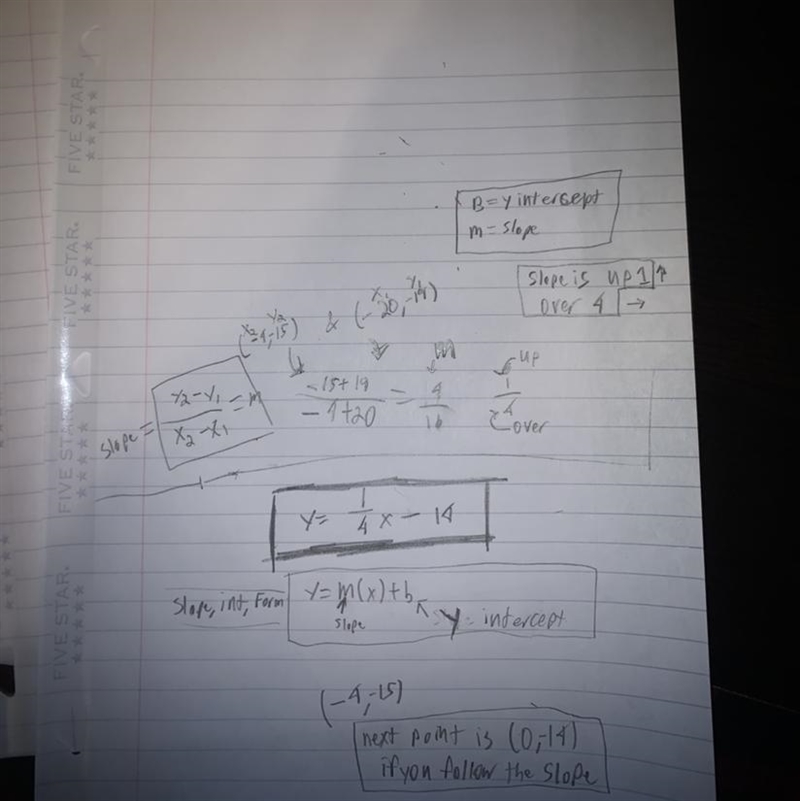 FIVE STAR.
FIVE STAR.
FIVE STAR.
FIVE STAR.
B = y intercept
m = slope
slope is up 1 ↑
over 4 →
x2 y2 x y1
(-4,-15) & (-20,-19)
m up
slope = Y2-Y1 / X2-X1 = m
-15+19 / -4+20 = 4 / 16
1 / 4
over
y = 1/4 x - 14
Slope, int, Form
y = m(x)+b
slope
y = intercept
(-4,-15)
next point is (0,-14)
if you follow the slope